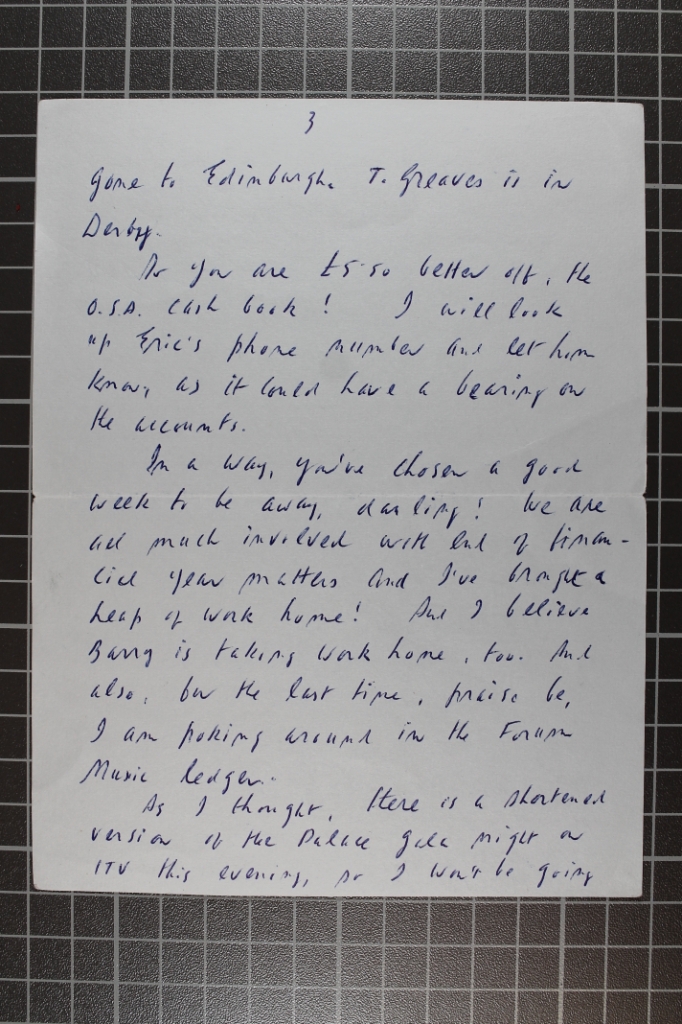 3
gone to Edinburgh. T. Greaves is in
Derby.
So you are £5.50 better off, the
O.S.A. cash book! I will look
up Eric's phone number and let him
know, as it could have a bearing on
the accounts.
In a way, you've chosen a good
week to be away, darling! We are
all much involved with end of finan-
cial year matters and I've brought a
heap of work home! And I believe
Barry is taking work home, too. And
also, for the last time, praise be,
I am poking around in the Forum
Music ledger.
As I thought, there is a shortened
version of the Palace gala night on
ITV this evening, so I won't be going